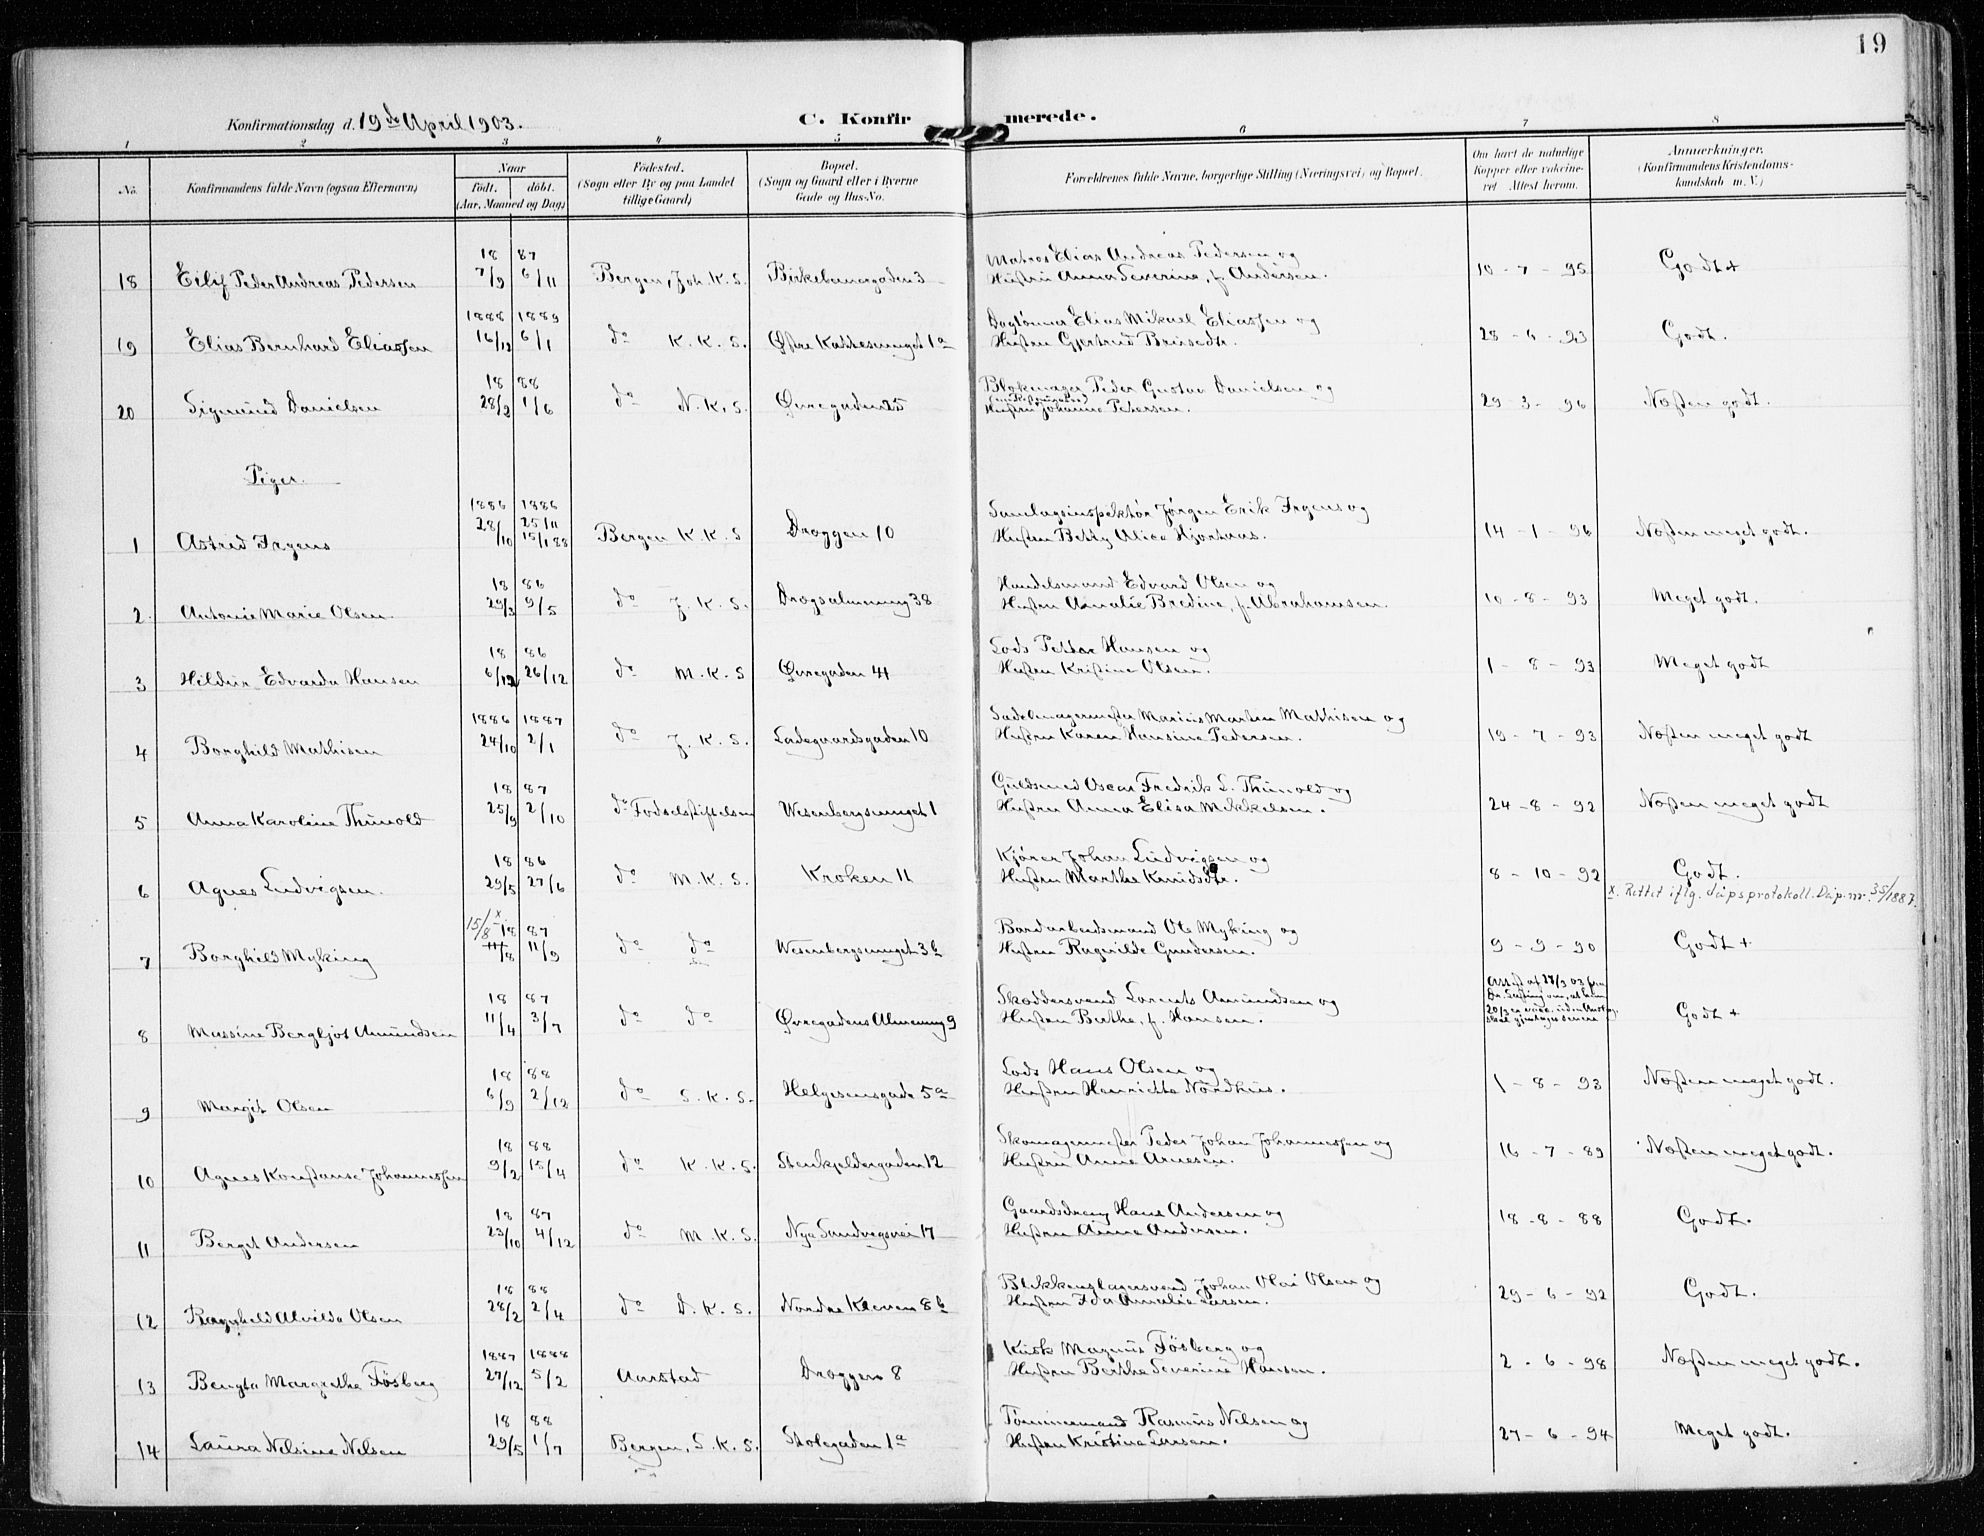 19
Konfirmationsdag d. 19de April 1903.
C. Konfirmerede.
1 2 3 4 5 6 7 8
No. | Konfirmandens fulde Navn (ogsaa Efternavn) | Naar født. døbt. (Aar, Maaned og Dag) | Fødested. (Sogn eller By og paa Landet tillige Gaard) | Bopæl. (Sogn og Gaard eller i Byerne Gade og Hus-No. | Forældrenes fulde Navne, borgerlige Stilling (Næringsvei) og Bopæl. | Om havt de naturlige Kopper eller vakcineret Attest herom. | Anmærkninger. (Konfirmandens Kristendomskundskab m. V.)
18 87 Matros Elias Andreas Pedersen og
18 Eilif Peder Andreas Pedersen 7/9 6/11 Bergen, Joh. K. S. Birkebeinergaden 3 Hustru Anna Severine, f. Andersen. 10-7-95 Godt+
1888 1889 Dagtønner Elias Mikael Eliassen og
19 Elias Bernhard Eliassen 16/12 6/1 do K. K. S. Østre Kattesmuget 1a Hustru Gjertrud Briisedtr. 28-6-93 Godt.
18 88 Blokmager Peder Gustav Danielsen og
20 Sigmund Danielsen 28/2 1/6 do N. K. S. Øvregaden 25 Hustru Johanne Petersen. 29-3-96 Næsten godt.
Piger.
1886 1886 Samlagsinspektør Jørgen Erik Irgens og
1 Astrid Irgens 28/10 25/11 15/1 88 Bergen K. K. S Dræggen 10 Hustru Betty Alice Hjortaas. 14-1-96 Næsten meget godt.
18 86 Handelsmand Edvard Olsen og
2. Antonie Marie Olsen. 29/3 9/5 do J. K. S. Drægsalmening 38 Hustru Amalie Bredine, f. Abrahamsen. 10-8-93 Meget godt.
18 86 Lods Petter Hansen og
3 Hildur Edvarda Hansen 6/12 26/12 do M. K. S Øvregaden 41 Hustru Kristine Olsen. 1-8-93 Meget godt
1886 1887 Sadelmagermester Marius Martin Mathisen og
4 Borghild Mathisen 24/10 2/1 do J. K. S. Ladegaardsgaden 10 Hustru Karen Hansine Pedersen. 19-7-93 Næsten meget godt
18 87 Guldsmed Oscar Fredrik L. Thunold og
5 Anna Karoline Thunold 25/9 2/10 do Fødselsstiftelsen Wesenbergsmuget 1 Hustru Anna Elisa Mikkelsen. 24-8-92 Næsten meget godt
18 86 Kjører Johan Ludvigsen og
6 Agnes Ludvigsen. 29/5 27/6 do M. K. S. Kroken 11 Hustru Marthe Knudsdtr. 8-10-92 Godt.
x. Rettet iflg. dåpsprotokoll. Dåp.nr. 35/1887.
15/8 x 18 87 Bordarbeidsmand Ole Myking og
7 Borghild Myking 11/8 11/9 do do Wesenbergsmuget 3b Hustru Ragnilde Gundersen. 9-9-90 Godt+
18 87 Skreddersvend Larents Amundsen og
8 Massine Bergljot Amundsen 11/4 3/7 do do Øvregadens Almening 9 Hustru Berthe, f. Hansen. Attest af 27/3 03 fra Dr. om, at hun 20/3 er uden skal gjentages senere Godt +
18 88 Lods Hans Olsen og
9 Margit Olsen 6/9 2/12 do S. K. S. Helgesensgade 5a Hustru Henriette Nordhus. 1-8-93 Næsten meget godt.
18 88 Skomagermester Peder Johan Johannessen og
10 Agnes Konstanse Johannessen 9/2 15/4 do K. K. S. Stenkjeldergaden 12 Hustru Anne Arnesen. 16-7-89 Næsten meget godt.
18 87 Gaardsdreng Hans Andersen og
11 Berget Andersen 23/10 4/12 do M. K. S. Nye Sandvigsvei 17 Hustru Anna Andersen. 18-8-88 Godt.
18 88 Blikkenslagersvend Johan Olai Olsen og
12 Ragnhild Alvilda Olsen 28/2 2/4 do D. K. S. Nordre Kleven 8b Hustru Ida Amalie Larsen. 29-6-92 Godt.
1887 1888 Kusk Magnus Føsberg og
13 Bengta Margrethe Føsberg 27/12 5/2 Aarstad Dræggen 8 Hustru Berthe Severine Hansen. 2-6-98 Næsten meget godt.
18 88 Tømmermand Rasmus Nilsen og
14 Laura Nelsine Nelsen 29/5 1/7 Bergen, S. K. S. Stølegaden 1a Hustru Kristine Larsen. 27-6-94 Meget godt.